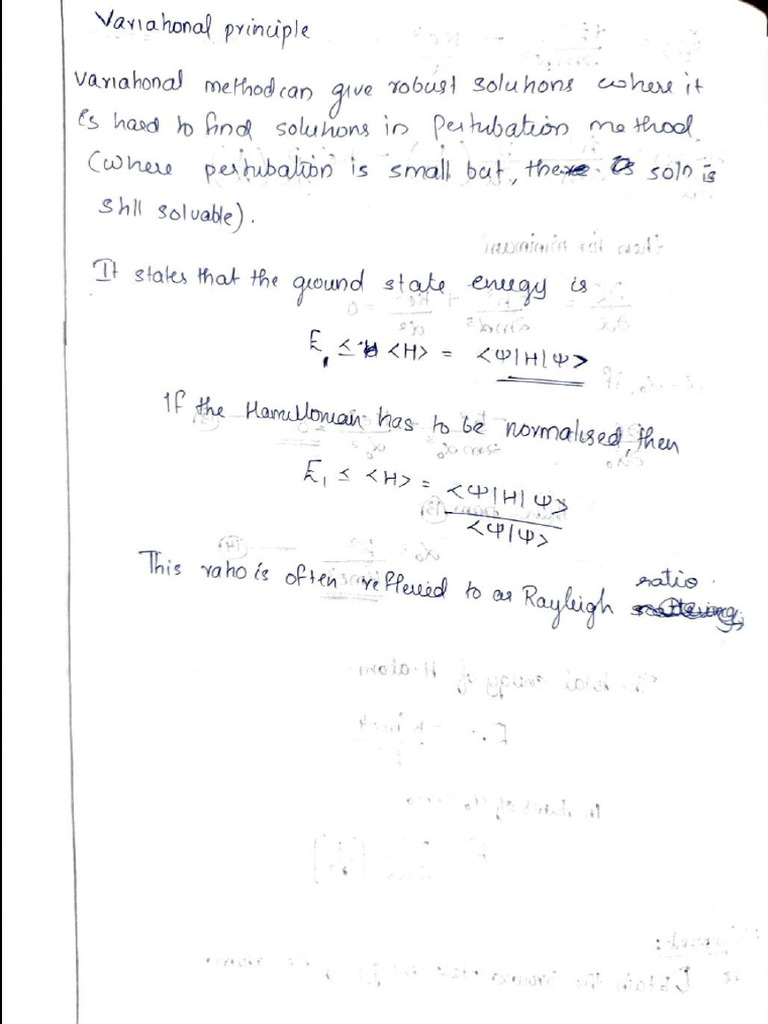 Variational principle
Variational method can give robust solutions where it
is hard to find solutions in Pertubation method.
(where pertubation is small but, there soln is
still soluable).
It states that the ground state energy is
E₁ ≤ <H> = <Ψ|H|Ψ>
If the Hamiltonian has to be normalised, then
E₁ ≤ <H> = <Ψ|H|Ψ>
<Ψ|Ψ>
This ratio is often reffered to as Rayleigh ratio.